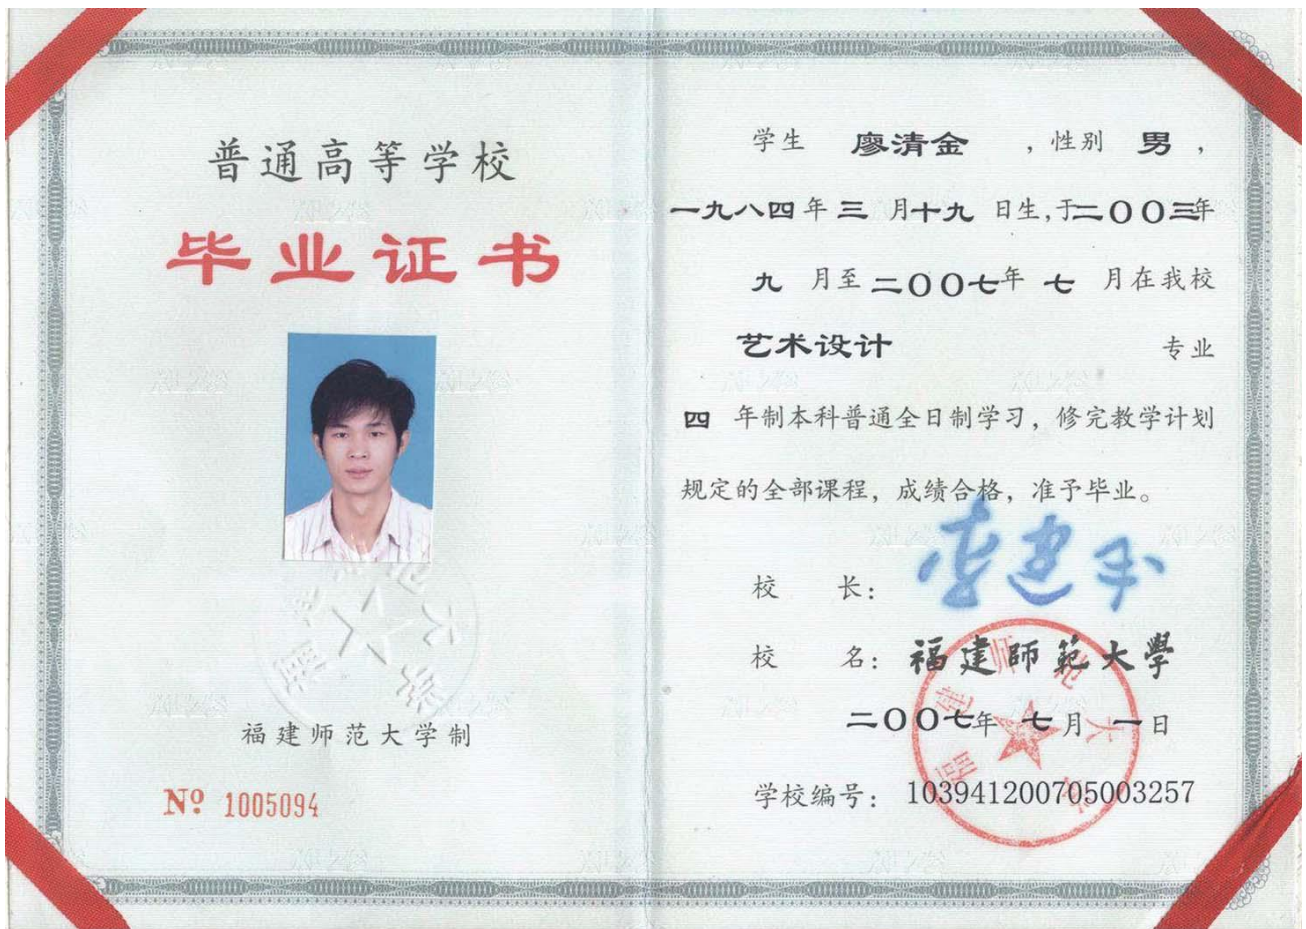 普通高等学校
毕业证书
福建师范大学制
Nº 1005094
学生 廖清金 ，性别 男 ，
一九八四年 三 月十九 日生，于二〇〇三年
九 月至 二〇〇七年 七 月在我校
艺术设计 专业
四 年制本科普通全日制学习，修完教学计划
规定的全部课程，成绩合格，准予毕业。
校 长：李建平
校 名：福建師範大學
二〇〇七年 七月 一日
学校编号：103941200705003257
福建师范大学